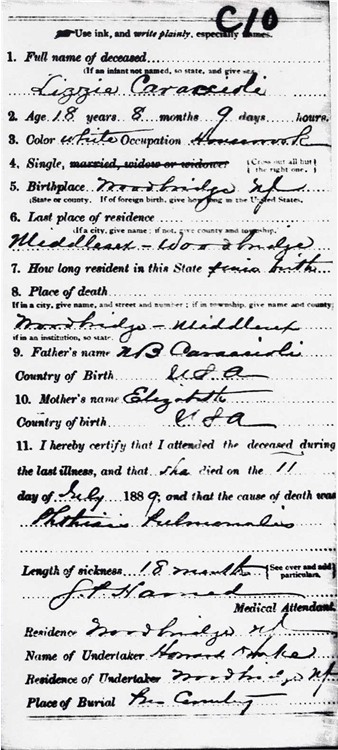 C10
Use ink, and write plainly, especially names.
1. Full name of deceased
(If an infant not named, so state, and give sex.
Lizzie Caraccioli
2. Age 18 years 8 months 9 days hours.
3. Color White Occupation Housework
4. Single, married, widow or widower { Cross out all but the right one. }
5. Birthplace Woodbridge NJ
(State or county. If of foreign birth, give how long in the United States.
6. Last place of residence
(If a city, give name; if not, give county and township.
Middlesex - Woodbridge
7. How long resident in this State since birth
8. Place of death
If in a city, give name, and street and number; if in township, give name and county;
Woodbridge - Middlesex
if in an institution, so state.
9. Father's name Caraccioli
Country of Birth U S A
10. Mother's name Elizabeth
Country of birth U S A
11. I hereby certify that I attended the deceased during
the last illness, and that she died on the 11
day of July 1889; and that the cause of death was
Phthisis Pulmonalis
Length of sickness 18 months { See over and add particulars.
Harned
Medical Attendant.
Residence Woodbridge NJ
Name of Undertaker Howard
Residence of Undertaker Woodbridge NJ
Place of Burial Pres Cemetery